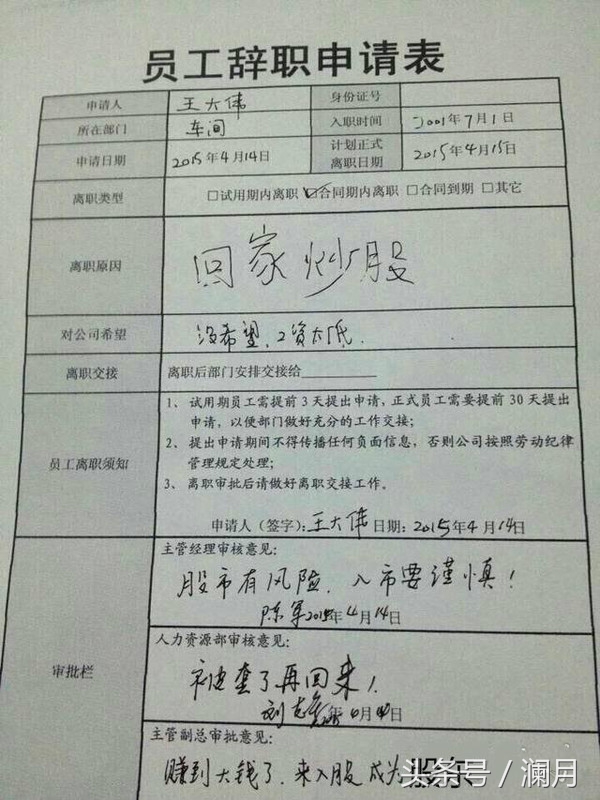 员工辞职申请表
申请人 王大伟 身份证号
所在部门 车间 入职时间 2001年7月1日
申请日期 2015年4月14日 计划正式离职日期 2015年4月15日
离职类型 □试用期内离职 ☑合同期内离职 □合同到期 □其它
离职原因 回家炒股
对公司希望 没希望,工资太低.
离职交接 离职后部门安排交接给
员工离职须知
1、试用期员工需提前3天提出申请,正式员工需要提前30天提出
申请,以便部门做好充分的工作交接;
2、提出申请期间不得传播任何负面信息,否则公司按照劳动纪律
管理规定处理;
3、离职审批后请做好离职交接工作。
申请人(签字):王大伟 日期:2015年4月14日
审批栏
主管经理审核意见:
股市有风险、入市要谨慎!
陈军 2015年4月14日
人力资源部审核意见:
被套了再回来!
年 月 日
主管副总审批意见:
赚到大钱了.来入股成为股东
头条号/澜月